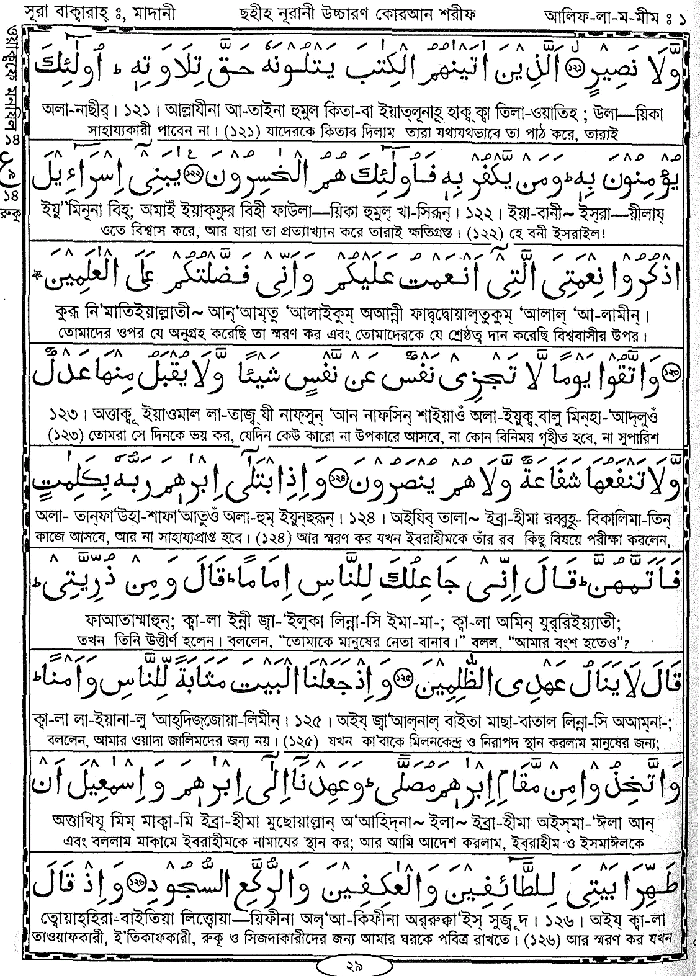 সূরা বাক্বারাহ্ ঃ, মাদানী ছহীহ নূরানী উচ্চারণ কোরআন শরীফ আলিফ-লা-ম-মীম ঃ ১
وَّلَا نَصِيْرٍ ﴿১২০﴾ اَلَّذِيْنَ اٰتَيْنٰهُمُ الْكِتٰبَ يَتْلُوْنَهٗ حَقَّ تِلَاوَتِهٖ ؕ اُولٰٓئِكَ
অলা-নাছীর্। ১২১। আল্লাযীনা আ-তাইনা হুমুল কিতা-বা ইয়াত্লূনাহূ হাক্ব্ ক্বা তিলা-ওয়াতিহ্ ; উলা—য়িকা
সাহায্যকারী পাবেন না। (১২১) যাদেরকে কিতাব দিলাম তারা যথাযথভাবে তা পাঠ করে, তারাই
يُؤْمِنُوْنَ بِهٖ ؕ وَمَنْ يَّكْفُرْ بِهٖ فَاُولٰٓئِكَ هُمُ الْخٰسِرُوْنَ ﴿১২১﴾ يٰبَنِيْٓ اِسْرَآءِيْلَ
ইয়ু'মিনূনা বিহ্; অমাইঁ ইয়াক্ফুর বিহী ফাউলা—য়িকা হুমুল্ খা-সিরূন্। ১২২। ইয়া-বানী~ ইস্রা—য়ীলায্
ওতে বিশ্বাস করে, আর যারা তা প্রত্যাখ্যান করে তারাই ক্ষতিগ্রস্ত। (১২২) হে বনী ইসরাইল!
اذْكُرُوْا نِعْمَتِيَ الَّتِيْٓ اَنْعَمْتُ عَلَيْكُمْ وَاَنِّيْ فَضَّلْتُكُمْ عَلَى الْعٰلَمِيْنَ
কুরূ নি'মাতিইয়াল্লাতী~ আন্'আম্তু 'আলাইকুম্ অআন্নী ফাদ্ব্দ্বোয়াল্তুকুম্ 'আলাল্ 'আ-লামীন্।
তোমাদের ওপর যে অনুগ্রহ করেছি তা স্মরণ কর এবং তোমাদেরকে যে শ্রেষ্ঠত্ব দান করেছি বিশ্ববাসীর উপর।
﴿১২২﴾ وَاتَّقُوْا يَوْمًا لَّا تَجْزِيْ نَفْسٌ عَنْ نَّفْسٍ شَيْئًا وَّلَا يُقْبَلُ مِنْهَا عَدْلٌ
১২৩। অত্তাক্বূ ইয়াওমাল লা-তাজ্ব্ যী নাফ্সুন্ 'আন নাফসিন্ শাইয়াওঁ অলা-ইয়ুক্ব্ বালু মিন্হা-'আদ্লুওঁ
(১২৩) তোমরা সে দিনকে ভয় কর, যেদিন কেউ কারো না উপকারে আসবে, না কোন বিনিময় গৃহীত হবে, না সুপারিশ
وَّلَا تَنْفَعُهَا شَفَاعَةٌ وَّلَا هُمْ يُنْصَرُوْنَ ﴿১২৩﴾ وَاِذِ ابْتَلٰٓى اِبْرٰهٖمَ رَبُّهٗ بِكَلِمٰتٍ
অলা- তান্ফা'উহা-শাফা'আতুওঁ অলা-হুম্ ইয়ুন্ছারূন্। ১২৪। অইযিব্ তালা~ ইব্রা-হীমা রব্বুহূ- বিকালিমা-তিন্
কাজে আসবে, আর না সাহায্যপ্রাপ্ত হবে। (১২৪) আর স্মরণ কর যখন ইবরাহীমকে তাঁর রব কিছু বিষয়ে পরীক্ষা করলেন,
فَاَتَمَّهُنَّ ؕ قَالَ اِنِّيْ جَاعِلُكَ لِلنَّاسِ اِمَامًا ؕ قَالَ وَمِنْ ذُرِّيَّتِيْ ؕ
ফাআতাম্মাহুন্; ক্বা-লা ইন্নী জ্বা-'ইলুকা লিন্না-সি ইমা-মা-; ক্বা-লা অমিন্ যুর্রিইয়্যাতী;
তখন তিনি উত্তীর্ণ হলেন। বললেন, “তোমাকে মানুষের নেতা বানাব।” বলল, “আমার বংশ হতেও”?
قَالَ لَا يَنَالُ عَهْدِى الظّٰلِمِيْنَ ﴿১২৪﴾ وَاِذْ جَعَلْنَا الْبَيْتَ مَثَابَةً لِّلنَّاسِ وَاَمْنًا ؕ
ক্বা-লা লা-ইয়ানা-লু 'আহ্দিজ্জোয়া-লিমীন্। ১২৫। অইয্ জ্বা'আল্নাল্ বাইতা মাছা-বাতাল্ লিন্না-সি অআম্না-;
বললেন, আমার ওয়াদা জালিমদের জন্য নয়। (১২৫) যখন কা'বাকে মিলনকেন্দ্র ও নিরাপদ স্থান করলাম মানুষের জন্য;
وَاتَّخِذُوْا مِنْ مَّقَامِ اِبْرٰهٖمَ مُصَلًّى ؕ وَعَهِدْنَآ اِلٰٓى اِبْرٰهٖمَ وَاِسْمٰعِيْلَ اَنْ
অত্তাখিযূ মিম্ মাক্বা-মি ইব্রা-হীমা মুছোয়াল্লান্ অ'আহিদ্না~ ইলা~ ইব্রা-হীমা অইস্মা-'ঈলা আন্
এবং বললাম মাকামে ইবরাহীমকে নামাযের স্থান কর; আর আমি আদেশ করলাম, ইবরাহীম ও ইসমাঈলকে
طَهِّرَا بَيْتِيَ لِلطَّآئِفِيْنَ وَالْعٰكِفِيْنَ وَالرُّكَّعِ السُّجُوْدِ ﴿১২৫﴾ وَاِذْ قَالَ
ত্বোয়াহ্হিরা-বাইতিয়া লিত্ত্বোয়া—য়িফীনা অল্'আ-কিফীনা অর্রুক্কা'ইস্ সুজূদ। ১২৬। অইয্ ক্বা-লা
তাওয়াফকারী, ই'তিকাফকারী, রুকু ও সিজদাকারীদের জন্য আমার ঘরকে পবিত্র রাখতে। (১২৬) আর স্মরণ কর যখন
২৯